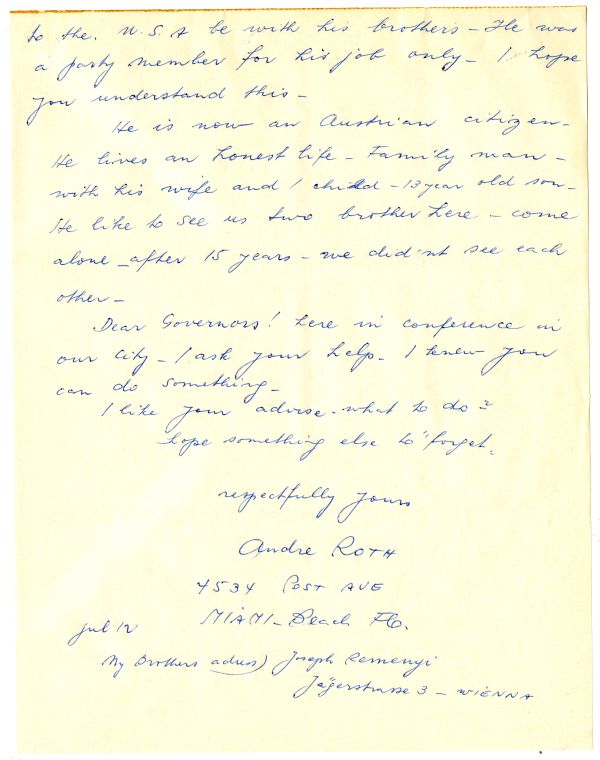 to the. U.S.A be with his brothers - He was
a party member for his job only - I hope
you understand this -
He is now an Austrian citizen -
He lives an honest life - Family man -
with his wife and 1 child - 13 year old son -
He like to see us two brother here - come
alone - after 15 years - we did'nt see each
other -
Dear Governors! here in conference in
our city - I ask your help. I knew you
can do something -
I like your advise - what to do -
hope something else to "forget.
respectfully yours
Andre ROTH
4534 POST AVE
MIAMI - Beach Fla.
Jul 12
My Brothers adress) Joseph Remenyi
Jägerstrasse 3 - WIENNA